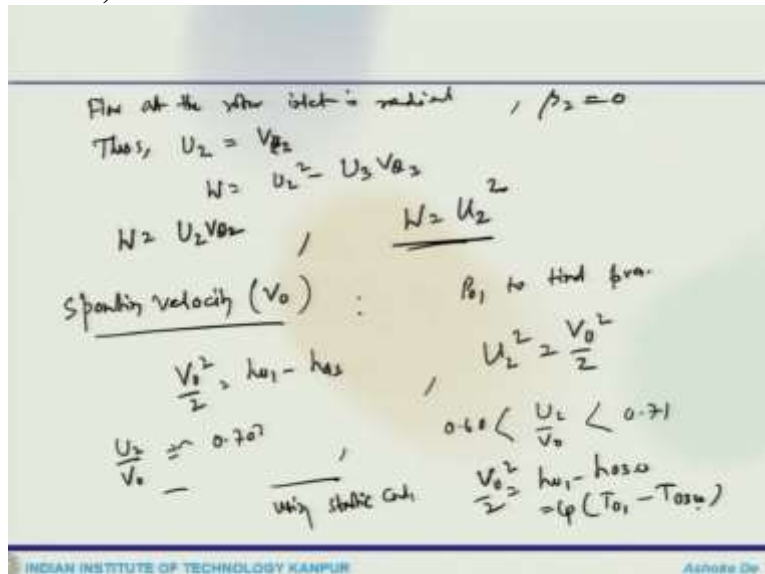 Flow at the rotor inlet is radial , β₂ = 0
Thus, U₂ = Vθ₂
W = U₂² - U₃ Vθ₃
W = U₂Vθ₂ , W = U₂²
Spouting velocity (V₀) : P₀₁ to find pres.
V₀²/2 = h₀₁ - h₀₃ , U₂² = V₀²/2
U₂/V₀ = 0.707 , 0.60 < U₂/V₀ < 0.71
using static cond. V₀²/2 = h₀₁ - h₀₃ₛₛ
= Cp (T₀₁ - T₀₃ₛₛ)
INDIAN INSTITUTE OF TECHNOLOGY KANPUR
Ashoke De